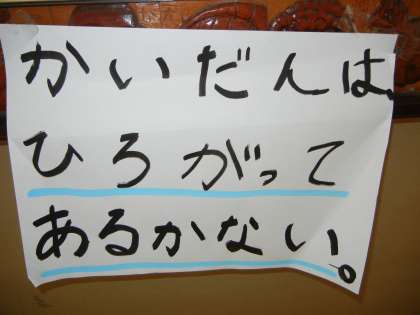 かいだんは、
ひろがって
あるかない。